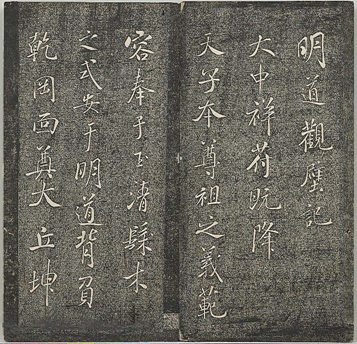 明道觀壁記
大中祥符既降
天子本尊祖之義範
容奉于玉清隸木
之式安于明道背負
乾岡西奠大丘坤